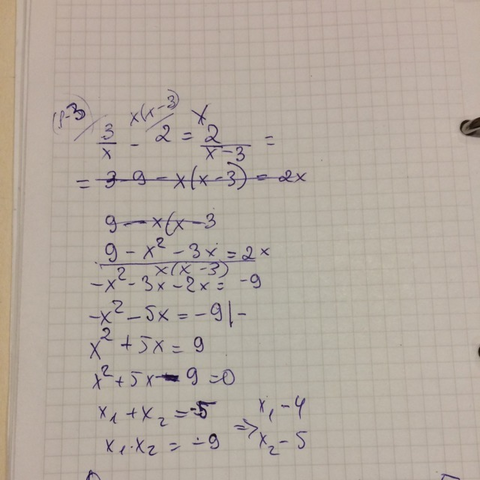 (x-3) x(x-3) x
3/x - 2 = 2/(x-3) =
= 3-9 - x(x-3) = 2x
9 - x(x-3
(9 - x² - 3x = 2x)/(x(x-3))
-x² - 3x - 2x = -9
-x² - 5x = -9 |-
x² + 5x = 9
x² + 5x - 9 = 0
x₁ + x₂ = -5
x₁ · x₂ = -9
=> x₁ - 4
x₂ - 5